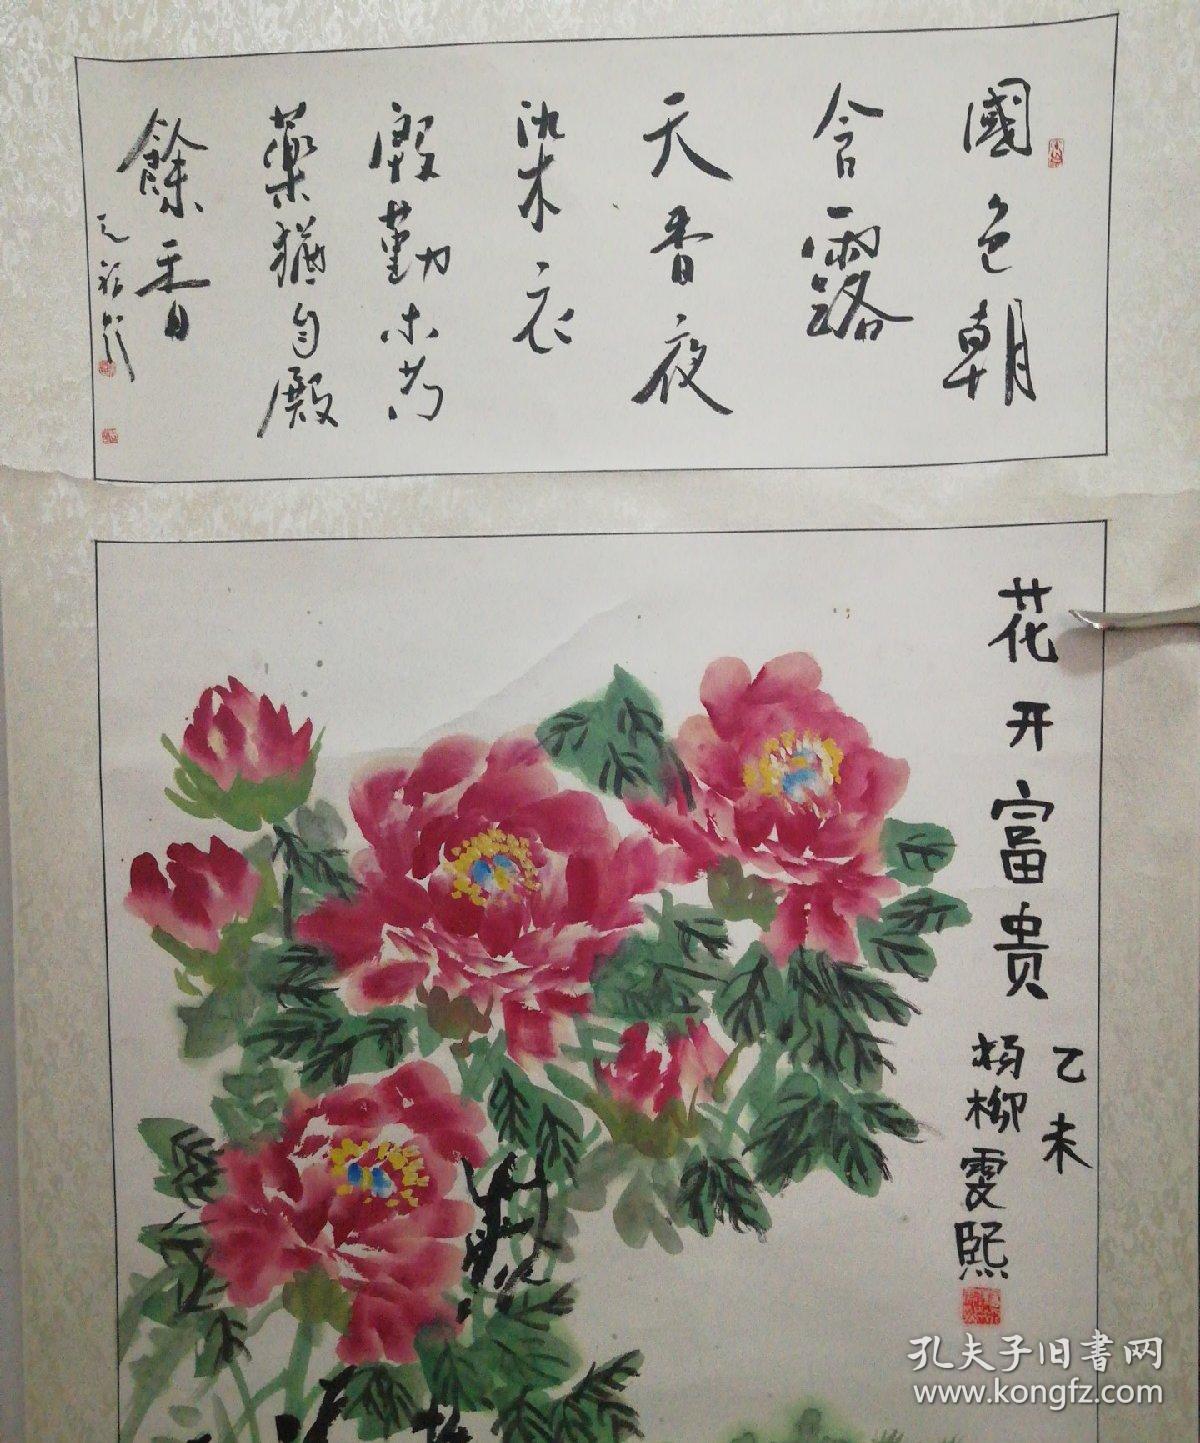 國色朝
含露
天香夜
染衣
殷勤木芍
藥猶自殿
餘香
花开富贵
乙未
杨柳雯熙
孔夫子旧书网
www.kongfz.com